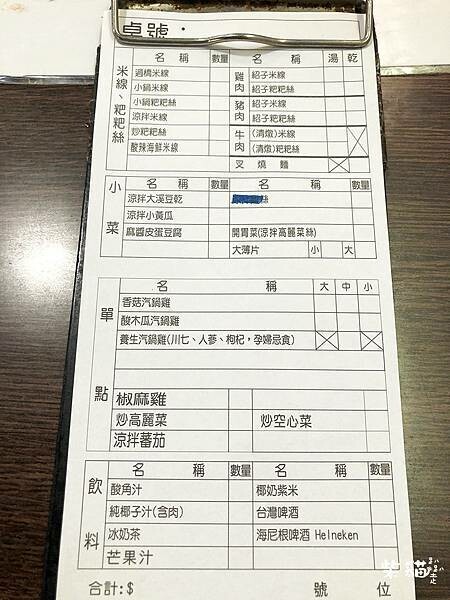 桌號：
米線、粑粑絲
名 稱 數量 名 稱 湯 乾
過橋米線 雞肉 紹子米線
小鍋米線 紹子粑粑絲
小鍋粑粑絲 豬肉 紹子米線
涼拌米線 紹子粑粑絲
炒粑粑絲 牛肉 (清燉)米線
酸辣海鮮米線 (清燉)粑粑絲
叉燒麵
小菜
名 稱 數量 名 稱 數量
涼拌大溪豆乾 絲
涼拌小黃瓜
麻醬皮蛋豆腐 開胃菜(涼拌高麗菜絲)
大薄片 小 大
單點
名 稱 大 中 小
香菇汽鍋雞
酸木瓜汽鍋雞
養生汽鍋雞(川七、人蔘、枸杞，孕婦忌食)
椒麻雞
炒高麗菜 炒空心菜
涼拌蕃茄
飲料
名 稱 數量 名 稱 數量
酸角汁 椰奶紫米
純椰子汁(含肉) 台灣啤酒
冰奶茶 海尼根啤酒 Heineken
芒果汁
合計:$ 號 位